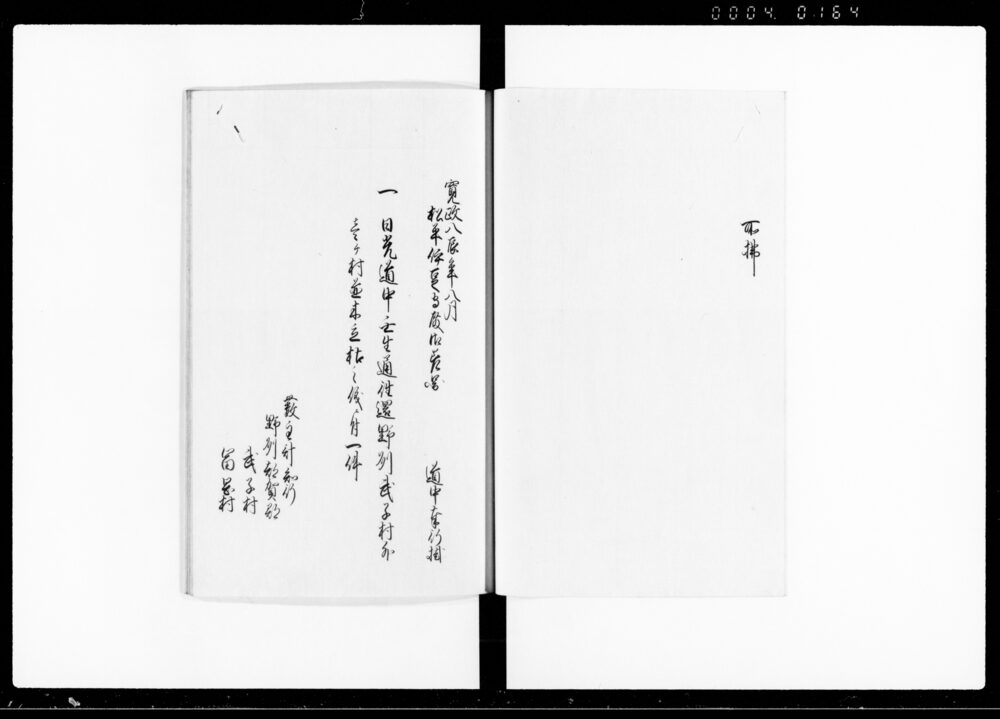 0004 0164
可拂
寛政八辰年八月
松平伊豆守殿御差図
道中奉行掛
一 日光道中壬生通往還野州武子村外
壱ヶ村並木立枯之儀ニ付一件
藪主計知行
野州都賀郡
武子村